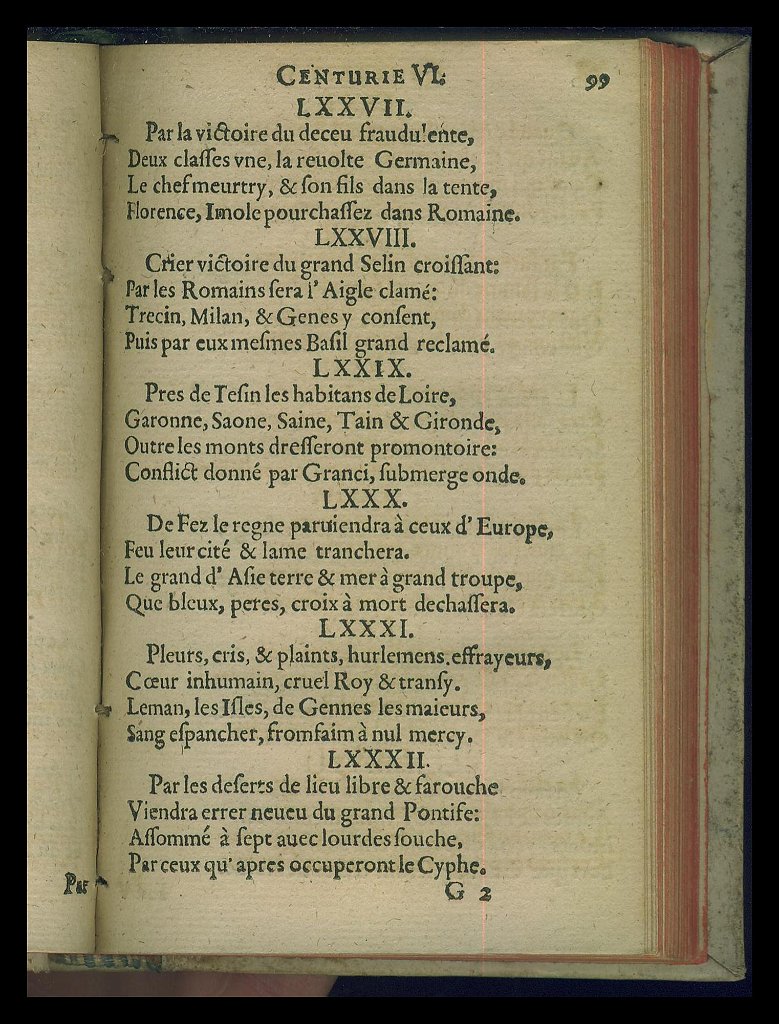 CENTURIE VI. 99
LXXVII.
Par la victoire du deceu fraudulente,
Deux claſſes vne, la reuolte Germaine,
Le chef meurtry, & ſon fils dans la tente,
Florence, Imole pourchaſſez dans Romaine.
LXXVIII.
Crier victoire du grand Selin croiſſant:
Par les Romains ſera l'Aigle clamé:
Trecin, Milan, & Genes y conſent,
Puis par eux meſmes Baſil grand reclamé.
LXXIX.
Pres de Teſin les habitans de Loire,
Garonne, Saone, Saine, Tain & Gironde,
Outre les monts dreſſeront promontoire:
Conflict donné par Granci, ſubmerge onde.
LXXX.
De Fez le regne paruiendra à ceux d'Europe,
Feu leur cité & lame tranchera.
Le grand d'Aſie terre & mer à grand troupe,
Que bleux, peres, croix à mort dechaſſera.
LXXXI.
Pleurs, cris, & plaints, hurlemens, effrayeurs,
Cœur inhumain, cruel Roy & tranſy.
Leman, les Iſles, de Gennes les maieurs,
Sang eſpancher, fromfaim à nul mercy.
LXXXII.
Par les deſerts de lieu libre & farouche
Viendra errer neueu du grand Pontife:
Aſſommé à ſept auec lourdes ſouche,
Par ceux qu'apres occuperont le Cyphe.
G 2
Par